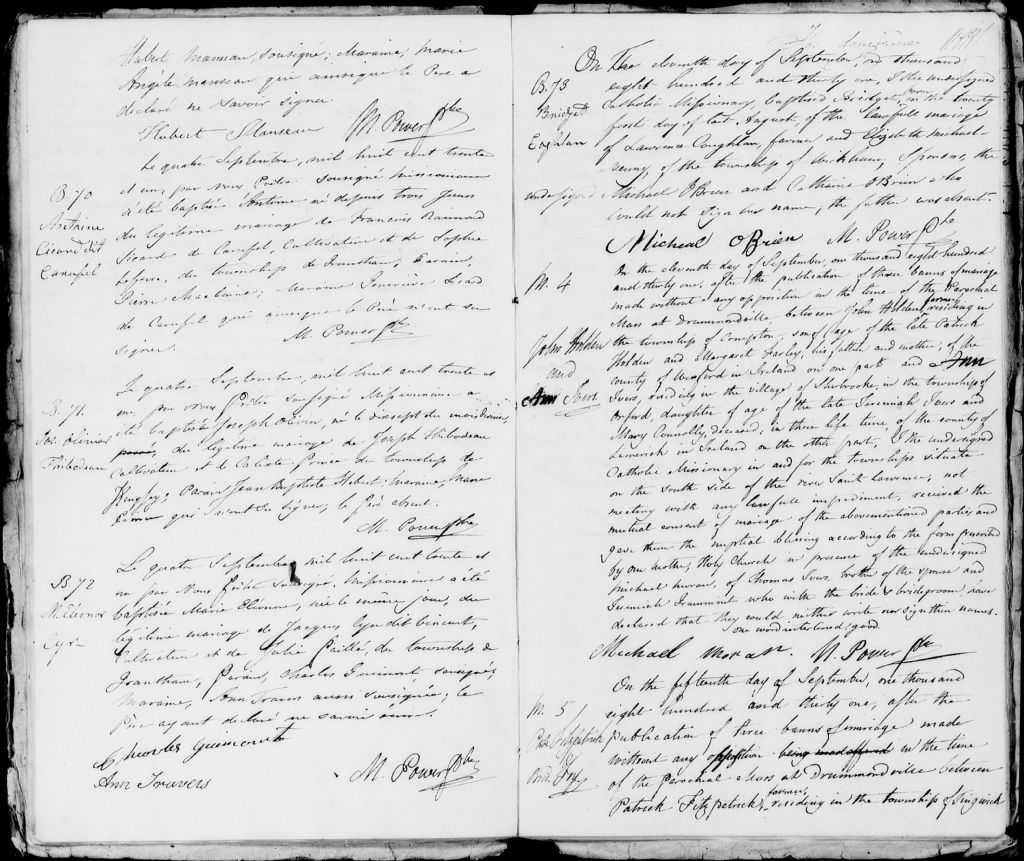 Hubert Manseau, sousigné; Maraine, Marie
Angèle manseau qui ainsique le Père a
declaré ne savoir signer.
Hubert Manseau M. Power Ptre
B. 70
Antoine
Cicard dit
Carufel
Le quatre Septembre, mil huit cent trente
et un, par Nous Prêtre Sousigné missionnaire
a été baptisé Antoine né depuis trois jours
du legitime mariage de François Raimond
Sicard de Carufel, Cultivateur et de Sophie
des townships de Grantham; Parain,
Pierre maraine
de Carufel qui ainsique le Père n'ont su
signer. M. Power Ptre
B. 71
Jos. Olivier
Thibodeau
Le quatre Septembre, mil huit cent trente et
un par nous Prêtre Sousigné Missionnaire a
été baptisé Joseph Olivier, né le dixsept du mois dernier,
du légitime mariage de Joseph Thibodeau
Cultivateur et de Caliste de townships de
Kingsey; Parain Jean Baptiste Hebert; maraine, Marie
qui n'ont su signer; le père absent.
M. Power Ptre
B 72
M. Eléonor
Cyr
Le quatre Septembre mil huit cent trente et
un par Nous Prêtre Sousigné, missionnaire a été
baptisée Marie Eléonore, née le même jour, du
légitime mariage de Jacques Cyr dit Vincent,
Cultivateur et de Julie Paillé, du townships de
Grantham; Parain, Charles Guimont sousigné;
Maraine, Ann Travers aussi Sousignée; le
Père ayant declaré ne savoir écrire.
Charles Guemont
Ann Travers M. Power Ptre
B. 73
Bridget
Coghlan
On The eleventh day of September, on thousand
eight hundred and thirty one, I the undersigned
Catholic Missionary, baptised Bridget, born on the twenty
first day of last August, of the lawfull mariage
of Lawrence Coughlan, farmer and Elizabeth michael-
of the townships of Wickham; Sponsors, the
undersigned Michael O'Brien and Catharine O'Brien who
could not sign her name; the father was absent.
Micheal O Brien M. Power Ptre
M. 4
John Holden
and
Ann Ivers
On the eleventh day of September one thousand eight hundred
and thirty one, after the publication of three banns of mariage
made without any opposition in the time of the Parochial
Mass at Drummondville between John Holden, farmer, residing in
the township of Compton, son of age of the late Patrick
Holden and Margaret Farley, his father and mother, of the
county of Wexford in Ireland on one part and Ann
Ivers, residing in the village of Sherbrooke, in the townships of
Orford, daughter of age of the late Jeremiah Ivers and
Mary Connolly, deceased, in their life time, of the county of
Limerick in Ireland on the other part, I the undersigned
Catholic Missionary in and for the townships situate
on the south side of the river Saint Lawrence, not
meeting with any lawfull impediment, received the
mutual consent of mariage of the abovementioned parties and
gave them the nuptial blessing according to the form prescribed
by our mother, Holy Church in presence of the undersigned
Michael moran, of Thomas Ivers, brother of the spouse and
Jeremiah Drummont who with the bride & bridegroom, have
declared that they could neither write nor sign their names.
one word interlined; good.
Michael moran. M. Power Ptre
M. 5
Pat. Fitzpatrick
On the fifteenth day of September, one thousand
eight hundred and thirty one, after the
publication of three banns of mariage made
without any opposition being made in the time
of the Parochial Mass at Drummondville between
Patrick Fitzpatrick, farmer, residing in the township of Tingwick